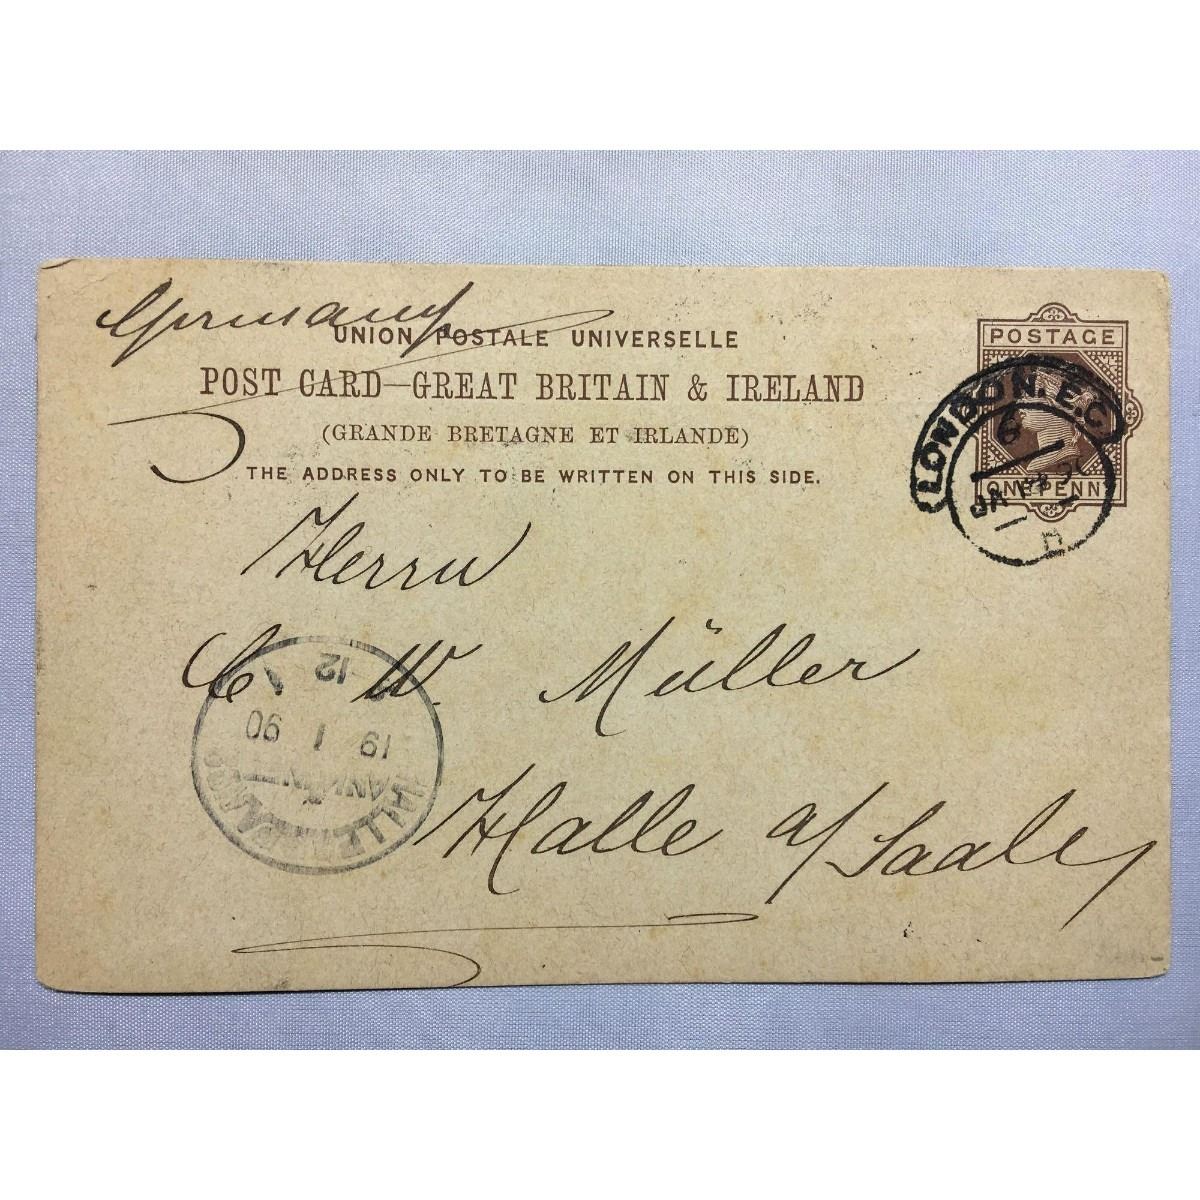 Germany
UNION POSTALE UNIVERSELLE
POST CARD–GREAT BRITAIN & IRELAND
(GRANDE BRETAGNE ET IRLANDE)
THE ADDRESS ONLY TO BE WRITTEN ON THIS SIDE.
POSTAGE
ONE PENNY
LONDON. E.C.
6
JA
Herrn
C W. Müller
Halle a/Saale
HALLE
12
19 1 90